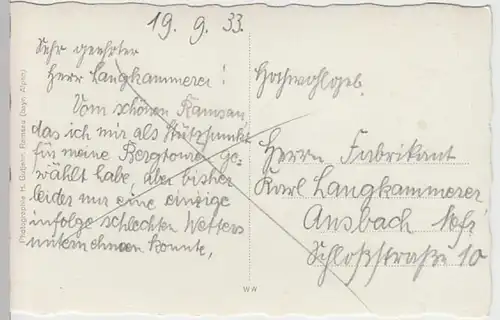 19. 9. 33.
Sehr geehrter
Herr Langkammerer!
Vom schönen Ramsau,
das ich mir als Stützpunkt
für meine Bergtouren ge-
wählt habe, aber bisher
leider nur eine einzige
infolge schlechten Wetters
unternehmen konnte,
Hochwohlgeb.
Herrn Fabrikant
Karl Langkammerer
Ansbach
Schloßstraße 10
Photographie H. Ramsau (bayr. Alpen)
WW